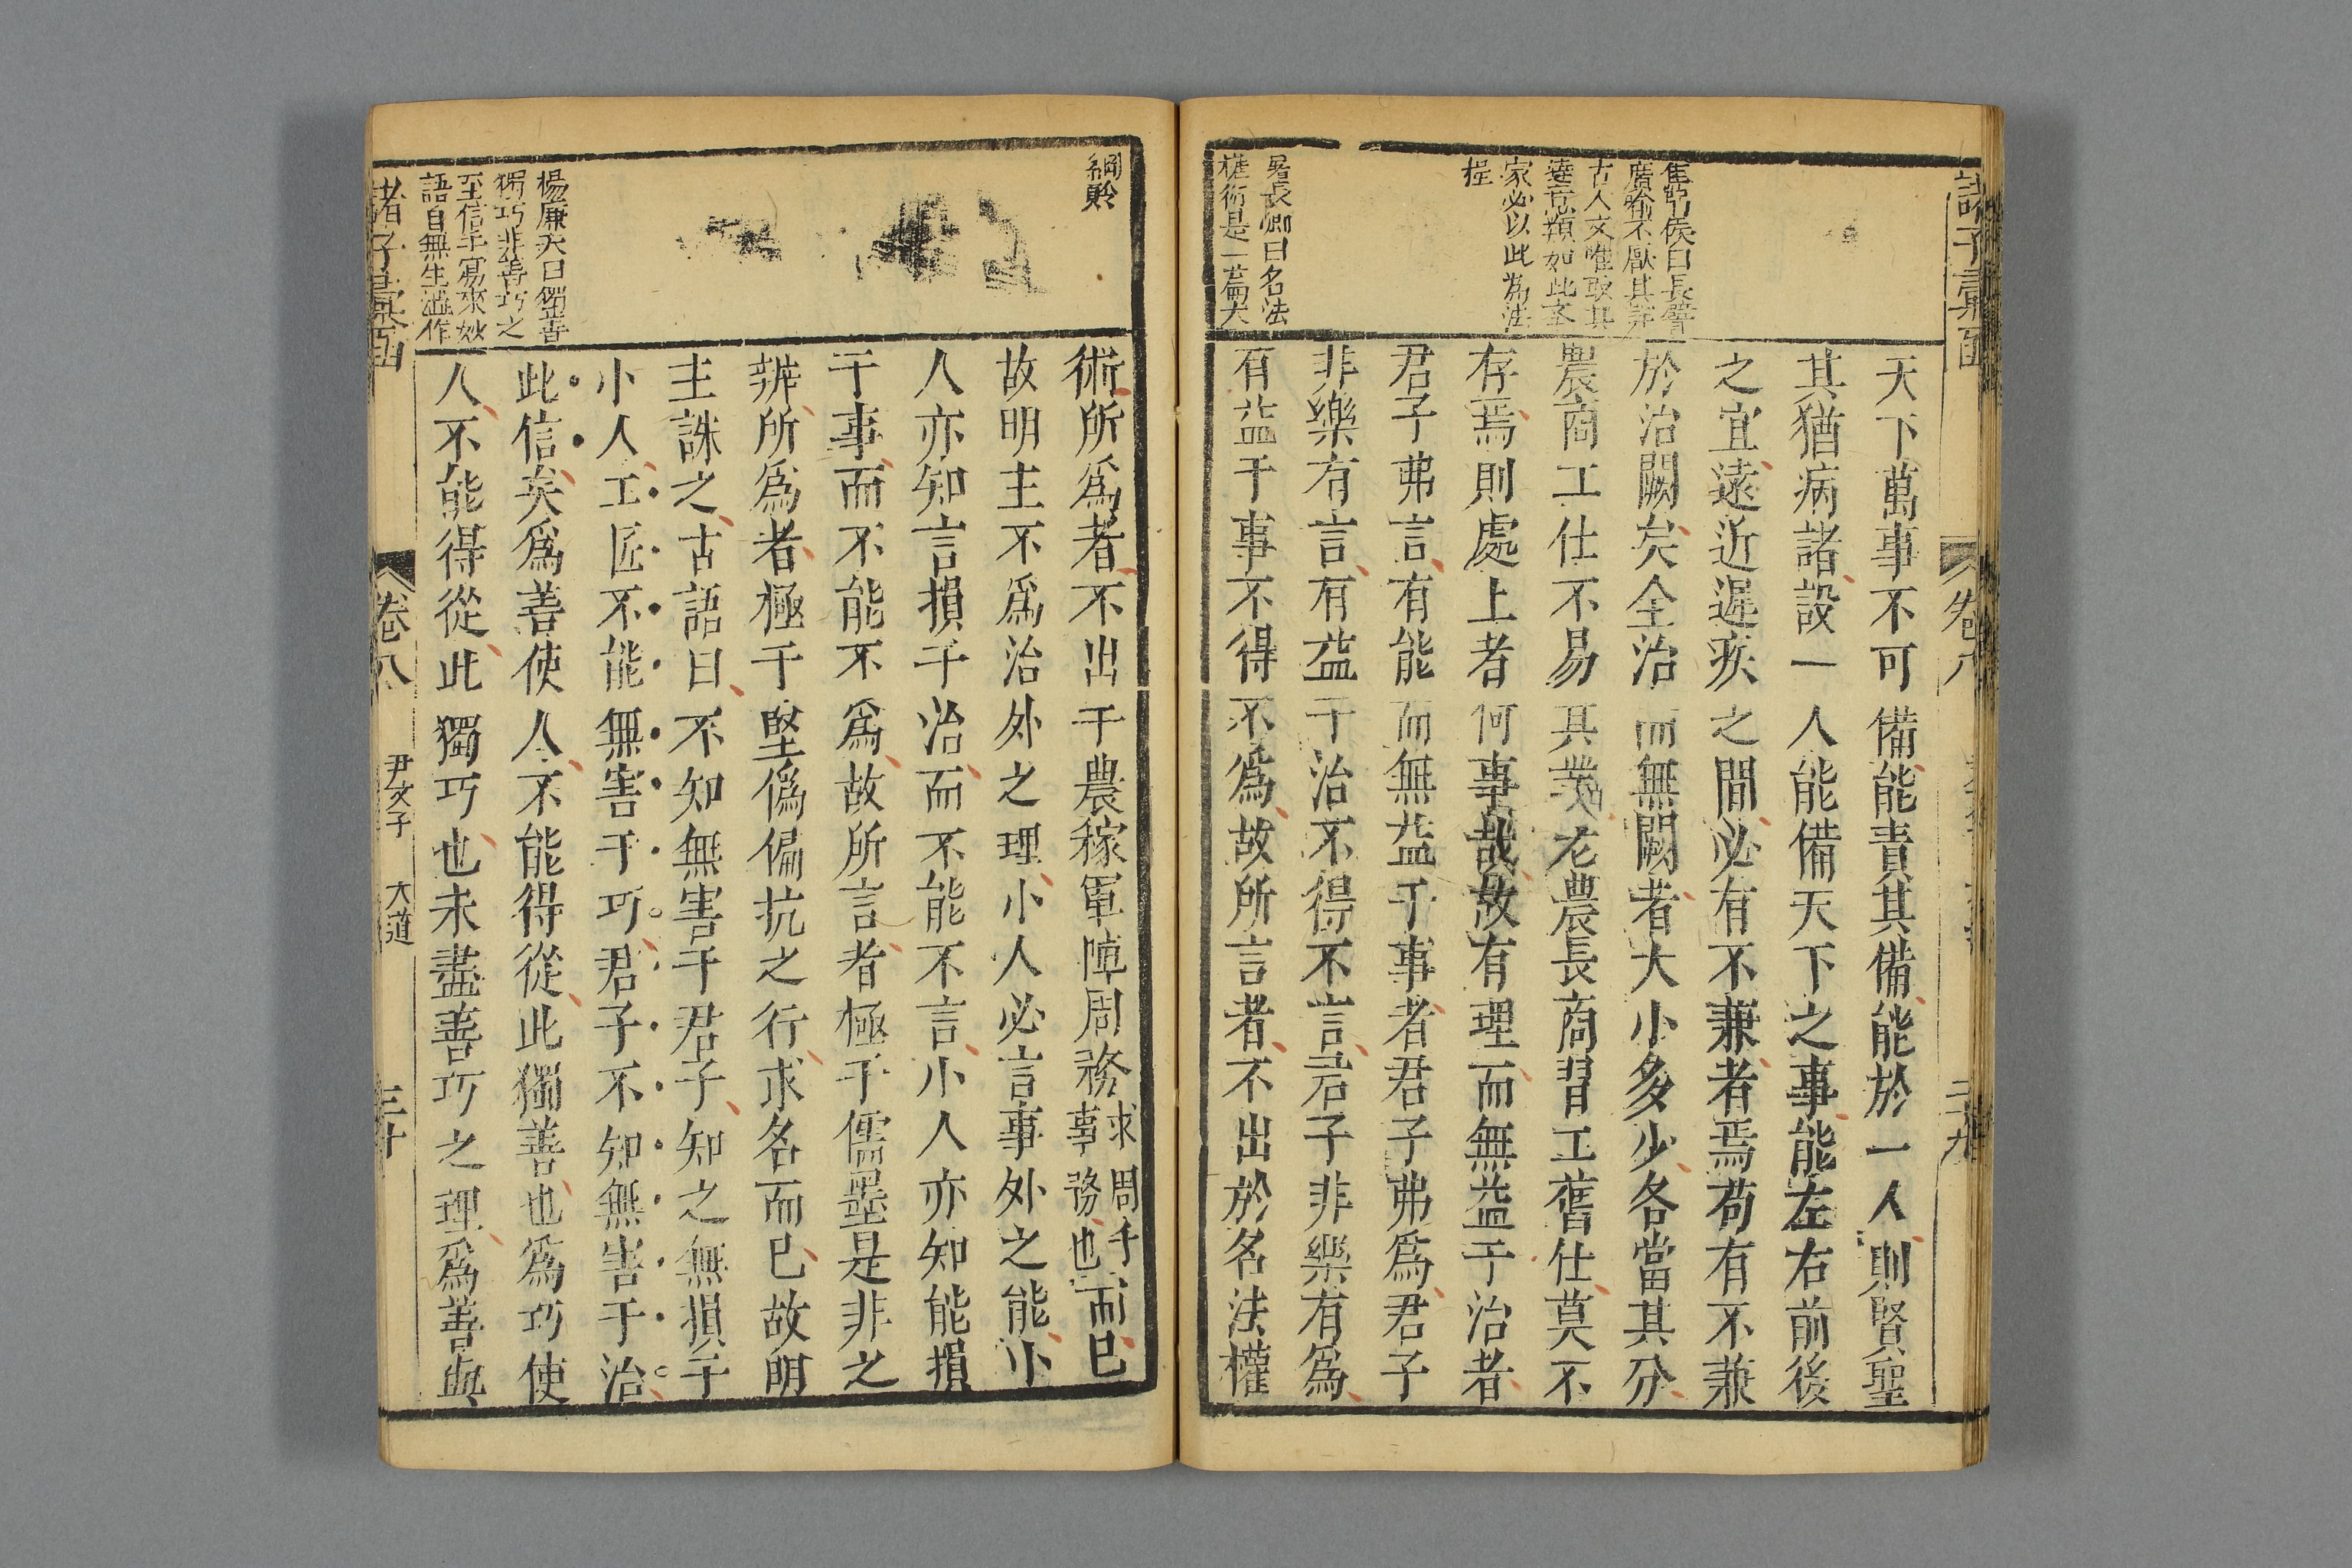 天下萬事不可備能責其備能於一人則賢聖
其猶病諸設一人能備天下之事能左右前後
之宜遠近遲疾之間必有不兼者焉苟有不兼
於治闕矣全治而無闕者大小多少各當其分
農商工仕不易其業老農長商習工舊仕莫不
存焉則處上者何事哉故有理而無益于治者
君子弗言有能而無益于事者君子弗爲君子
非樂有言有益于治不得不言君子非樂有爲
有益于事不得不爲故所言者不出於名法權
侯曰長譬
廣喻不厭其詳
古人文惟取其
達意類如此文
家必以此為法
長卿曰名法
權術是一篇大
術所爲者不出于農稼軍陣周務求周于事務也而已
故明主不爲治外之理小人必言事外之能小
人亦知言損于治而不能不言小人亦知能損
于事而不能不爲故所言者極于儒墨是非之
辨所爲者極于堅僞偏抗之行求名而已故明
主誅之古語曰不知無害于君子知之無損于
小人工匠不能無害于巧君子不知無害于治
此信矣爲善使人不能得從此獨善也爲巧使
人不能得從此獨巧也未盡善巧之理爲善與
綱領
楊廉夫曰獨善
獨巧非善巧之
至信手寫來妙
語自無生澁作
諸子彙函
卷八
尹文子
大道
三十
諸子彙函
卷八
二十九